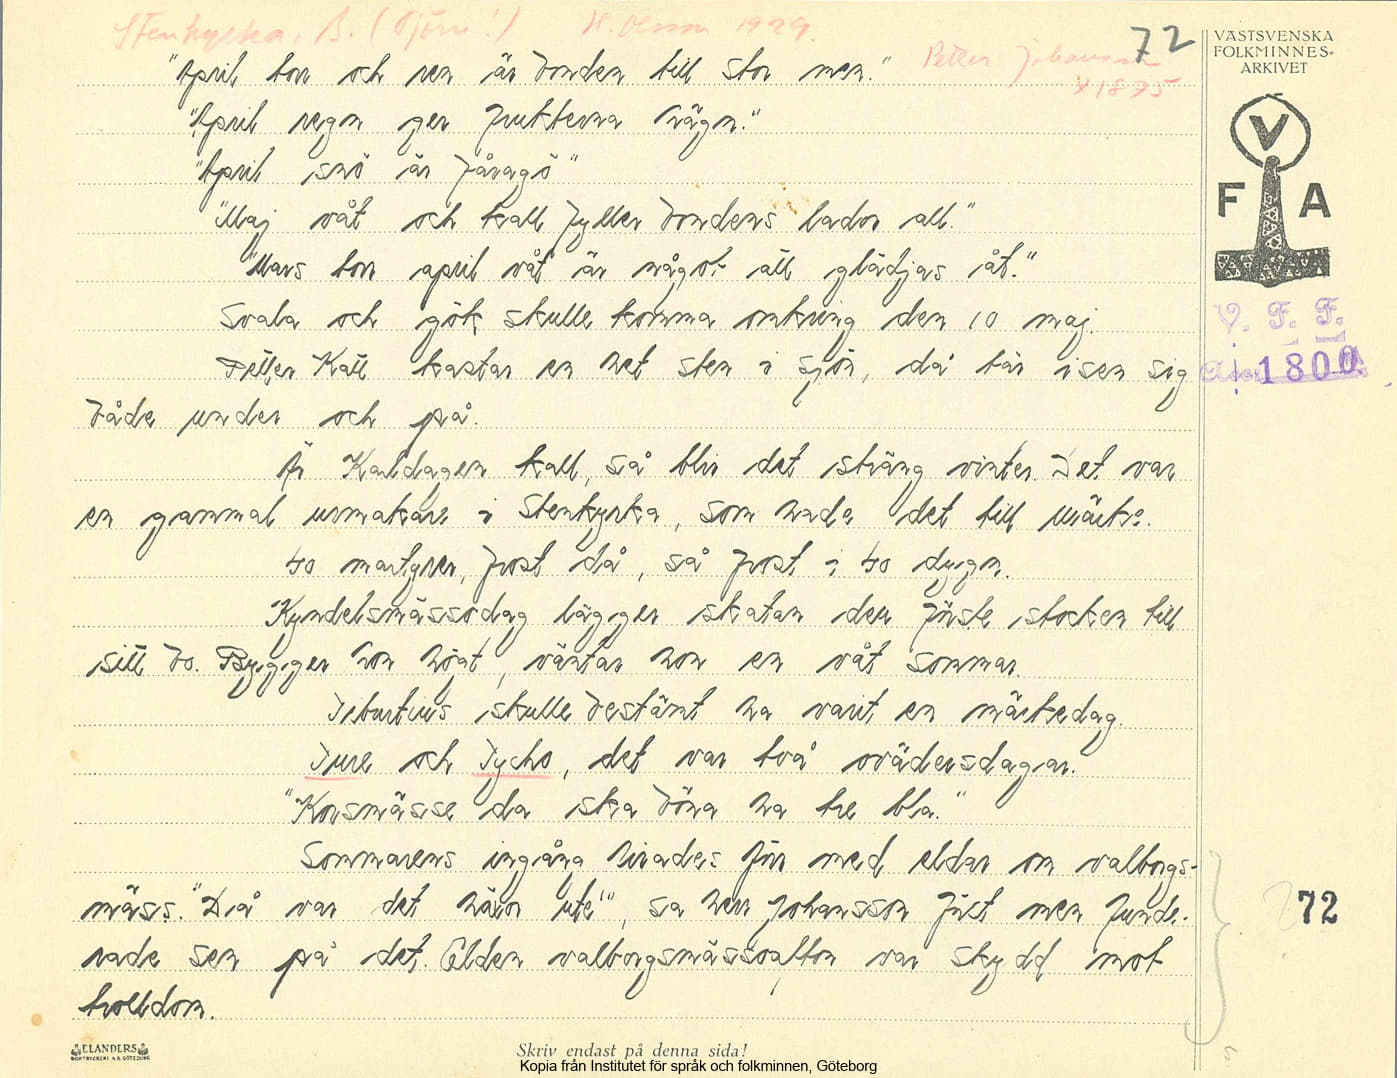 Stenkyrka, B. (Tjörn!) H. Olsson 1929.
72
Petter Johansson
f. 1875
VÄSTSVENSKA
FOLKMINNES=
ARKIVET
"April torr och ren är bonden till stor men."
"April regn ger frukterna hägn."
"April snö är fåragö"
"Maj våt och kall fyller bondens lador all."
"Mars torr april våt är något att glädjas åt."
V
F A
Svala och gök skulle komma omkring den 10 maj.
V. F. F.
Petter Katt kastar en het sten i sjön, då tär isen sig
Acc. 1800
både under och på.
Är Karldagen kall, så blir det sträng vinter. Det var
en gammal urmakare i Stenkyrka, som hade det till märke.
40 martyrer, frost då, så frost i 40 dygn.
"Kyndelsmässodag lägger skatan den förste stocken till
sitt bo. Bygger hon högt, väntar hon en våt sommar.
Tiburtius skulle bestämt ha varit en märkedag.
Ture och Tycho, det var två ovädersdagar.
"Korsmässe da ska böna ha tre bla."
Sommarens ingång firades förr med eldar om valborgs-
mäss. "Då var det häxor ute", sa herr Johansson fast men funde-
72
rade sen på det. Elden valborgsmässoafton var skydd mot
trolldom.
ELANDERS
BOKTRYCKERI A.B. GÖTEBORG
Skriv endast på denna sida!
Kopia från Institutet för språk och folkminnen, Göteborg